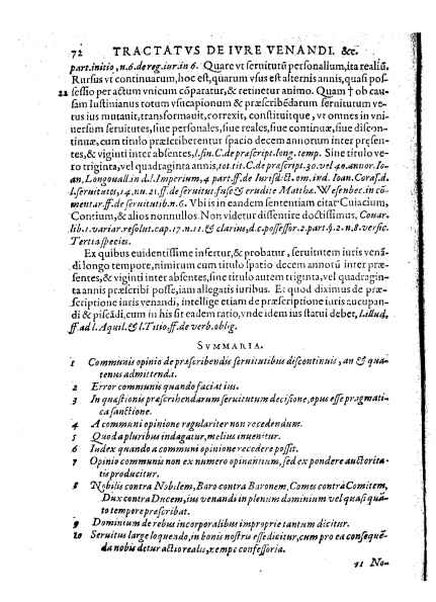 72 TRACTATVS DE IVRE VENANDI. &c.
part.initio, n.6.de reg.iur.in 6. Quare vt seruitutũ personalium, ita realiũ.
Rursus vt continuarum, hoc est, quarum vsus est alternis annis, quasi pos-
sessio per actum vnicum cõparatur, & retinetur animo. Quam † ob cau-
22 sam Iustinianus totum vsucapionum & præscribẽdarum seruitutum ve-
tus ius mutauit, transformauit, correxit, constituitque, vt omnes in vni-
uersum seruitutes, siue personales, siue reales, siue continuæ, siue discon-
tinuæ, cum titulo præscriberentur spacio decem annorum inter præsen-
tes, & viginti inter absentes, l.fin.C.de præscript.long.temp. Sine titulo ve-
ro triginta, vel quadraginta annis, tot tit.C.de præscript.30.vel 40.annor. Ioan
an. Longouall in d.l.Imperium, 4 part.ff.de Iurisd.ct.om.ird. Ioan. Coras.ad.
l.seruitutes, 14.nu.21.ff.de seruitut.fusè & erudite Matha. Wesenbec.in cõ-
mentar.ff.de seruitutib.n.6. Vbi is in eandem sententiam citat Cuiacium,
Contium, & alios nonnullos. Non videtur dissentire doctissimus, Couar.
lib.1.variar.resolut.cap.17.n.11.& clarius, d.c.possessor.2.part.§.2.n.8.versic.
Tertia species.
Ex quibus euidentissime infertur, & probatur, seruitutem iuris venã-
di longo tempore, nimirum cum titulo spatio decem annorũ inter præ-
sentes, & viginti inter absentes, sine titulo autem triginta, vel quadragin-
ta annis præscribi posse, iam allegatis iuribus. Et quod diximus de præ-
scriptione iuris venandi, intellige etiam de præscriptione iuris aucupan-
di & piscãdi, cum in his sit eadem ratio, vnde idem ius statui debet, l.illud,
ff.ad l.Aquil.& l.Titio,ff.de verb.oblig.
SVMMARIA.
1 Communis opinio de præscribendis seruitutibus discontinuis, an & qua-
tenus admittenda.
2 Error communis quando faciat ius.
3 In quæstionis præscribendarum seruitutum decisione, opus esse pragmati-
ca sanctione.
4 A communi opinione regulariter non recedendum.
5 Quod a pluribus indagatur, melius inuenitur.
6 Iudex quando a communi opinione recedere possit.
7 Opinio communis non ex numero opinantium, sed ex pondere auctorita-
tis producitur.
8 Nobilis contra Nobilem, Baro contra Baronem, Comes contra Comitem,
Dux contra Ducem, ius venandi in plenum dominium vel quasi quã-
to tempore præscribat.
9 Dominium de rebus incorporalibus improprie tantum dicitur.
10 Seruitus large loquendo, in bonis nostris esse dicitur, cum pro ea consequẽ-
da nobis detur actio realis, nempe confessoria.
11 No-